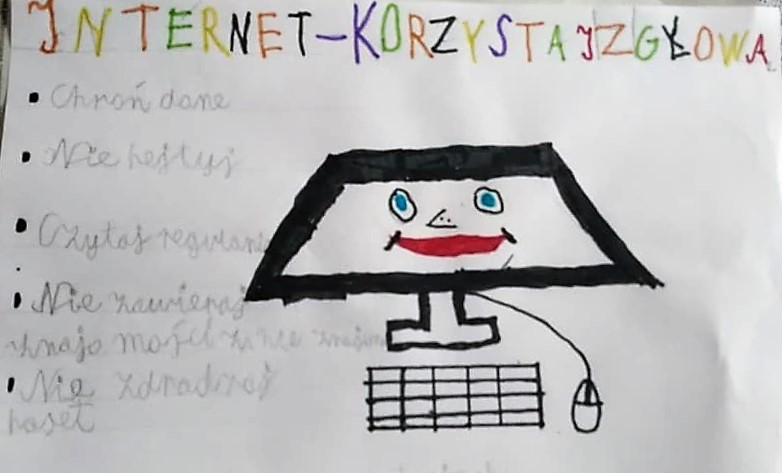 INTERNET-KORZYSTAJ Z GŁOWĄ
• Chroń dane
• Nie hejtuj
• Czytaj regulami
• Nie zawieraj
znajo mości z nie znajom
• Nie zdradzaj
haseł